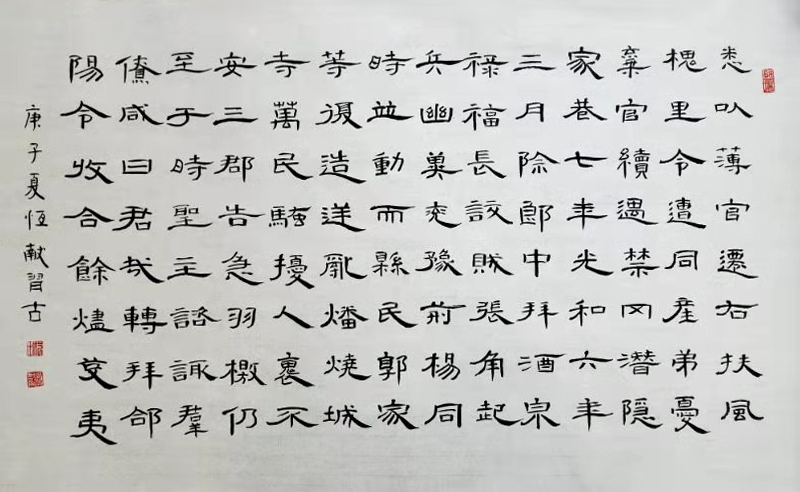 悉以薄官遷右扶風
槐里令遭同産弟憂
棄官續遇禁冈潛隱
家巷七年光和六年
三月除郎中拜酒泉
祿福長訞賊張角起
兵幽冀兗豫荊楊同
時並動而縣民郭家
等復造逆亂燔燒城
寺萬民騷擾人裹不
安三郡告急羽檄仍
至于時聖主諮諏羣
僚咸曰君哉轉拜郃
陽令收合餘燼芟夷
庚子夏恒献習古